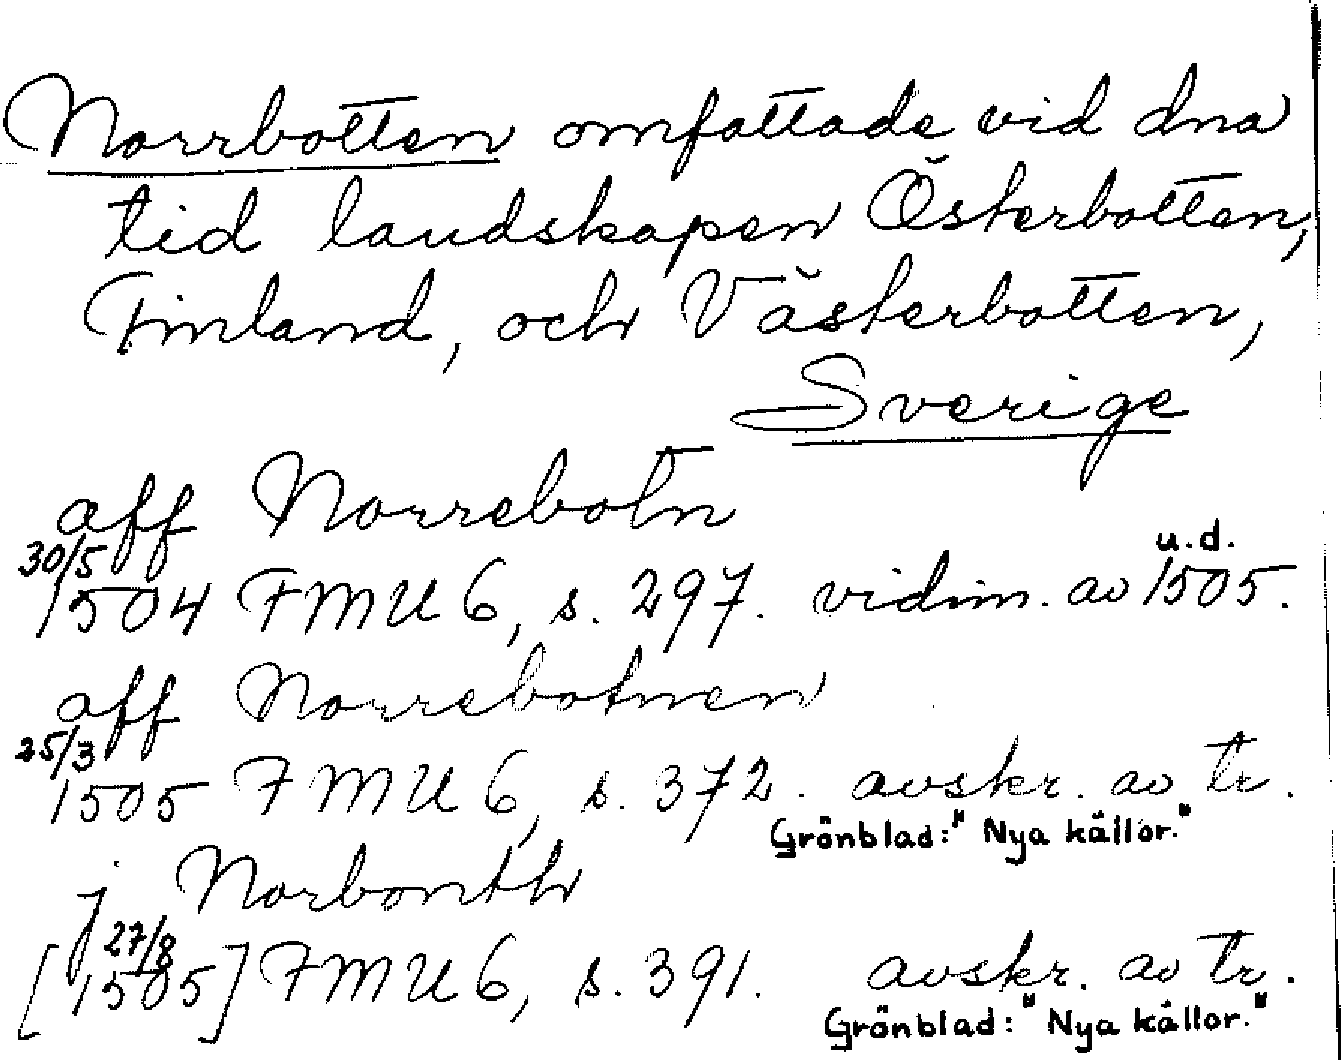 Norrbotten omfattade vid dna
tid landskapen Österbotten,
Finland, och Västerbotten,
Sverige
aff Norrebotn
30/5 u.d.
1504 FMU 6, s. 297. vidim. av 1505.
aff Norrebotnen
25/3
1505 FMU 6, s. 372. avskr. av tr.
Grönblad: "Nya källor."
j Norbonth
27/8
[1505] FMU 6, s. 391. avskr. av tr.
Grönblad: "Nya källor."